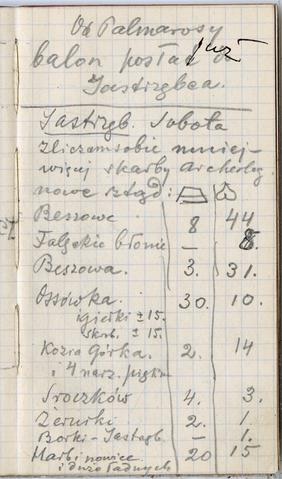 Od Palmarosy
balon posłać już do
Jastrzębca.
Jastrzęb. Sobota
zliczam sobie mniej-
więcej skarby Archeolog.
nowe
Beszowe 8 44
Falęckie błonie – 8.
Beszowa. 3. 31.
Ossówka. 30. 10.
igiełki ± 15.
skrob. ± 15.
Kozia Górka. 2. 14
i 4 narz. piękne
Sroczków 4. 3.
Żerniki 2. 1.
Borki-Jastrzęb. – 1.
20 15
i dużo ładnych